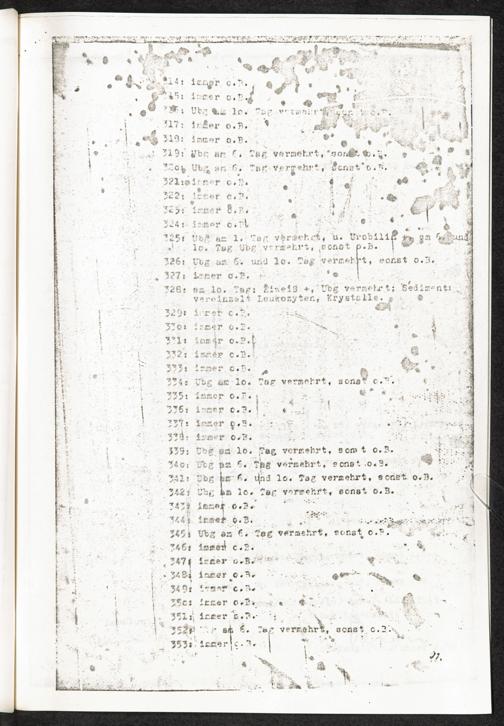 314: immer o.B.
315: immer o.B.
316: Ubg am 1o. Tag vermehrt, sonst o.B.
317: immer o.B.
318: immer o.B.
319: Ubg am 6. Tag vermehrt, sonst o.B.
320: Ubg am 6. Tag vermehrt, sonst o.B.
321: immer o.B.
322: immer o.B.
323: immer o.B.
324: immer o.B.
325: Ubg am 1. Tag vermehrt, u. Urobilin am 6. und
1o. Tag Ubg vermehrt, sonst o.B.
326: Ubg am 6. und 1o. Tag vermehrt, sonst o.B.
327: immer o.B.
328: am 1o. Tag: Eiweiß +, Ubg vermehrt; Sediment:
vereinzelt Leukozyten, Krystalle.
329: immer o.B.
33o: immer o.B.
331: immer o.B.
332: immer o.B.
333: immer o.B.
334: Ubg am 1o. Tag vermehrt, sonst o.B.
335: immer o.B.
336: immer o.B.
337: immer o.B.
338: immer o.B.
339: Ubg am 1o. Tag vermehrt, sonst o.B.
34o: Ubg am 6. Tag vermehrt, sonst o.B.
341: Ubg am 6. und 1o. Tag vermehrt, sonst o.B.
342: Ubg am 1o. Tag vermehrt, sonst o.B.
343: immer o.B.
344: immer o.B.
345: Ubg am 6. Tag vermehrt, sonst o.B.
346: immer o.B.
347: immer o.B.
348: immer o.B.
349: immer o.B.
35o: immer o.B.
351: immer o.B.
352: am 6. Tag vermehrt, sonst o.B.
353: immer o.B.